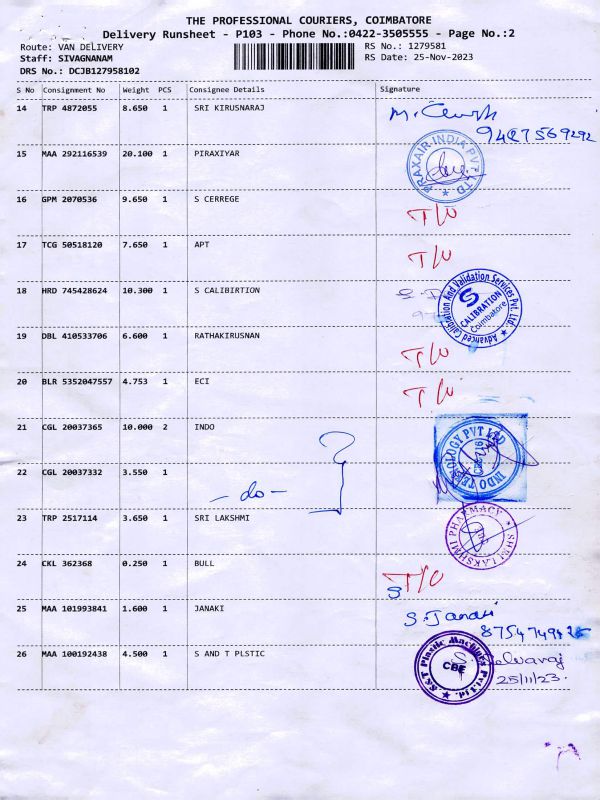 THE PROFESSIONAL COURIERS, COIMBATORE
Delivery Runsheet - P103 - Phone No.:0422-3505555 - Page No.:2
Route: VAN DELIVERY
Staff: SIVAGNANAM
DRS No.: DCJB127958102
RS No.: 1279581
RS Date: 25-Nov-2023
S No Consignment No Weight PCS Consignee Details Signature
14 TRP 4872055 8.650 1 SRI KIRUSNARAJ
9427569292
15 MAA 292116539 20.100 1 PIRAXIYAR
PRAXAIR INDIA PVT. LTD.
16 GPM 2070536 9.650 1 S CERREGE
T/U
17 TCG 50518120 7.650 1 APT
T/U
18 HRD 745428624 10.300 1 S CALIBIRTION
Advanced Calibration And Validation Services Pvt. Ltd.
S CALIBRATION
Coimbatore
19 DBL 410533706 6.600 1 RATHAKIRUSNAN
T/U
20 BLR 5352047557 4.753 1 ECI
T/U
21 CGL 20037365 10.000 2 INDO
INDO TEKNOLOGY PVT LTD
22 CGL 20037332 3.550 1
- do -
?
23 TRP 2517114 3.650 1 SRI LAKSHMI
SHRI LAKSHMI PHARMACY
24 CKL 362368 0.250 1 BULL
T/U
25 MAA 101993841 1.600 1 JANAKI
S. Janaki
26 MAA 100192438 4.500 1 S AND T PLSTIC
S&T Plastic Machines Pvt. Ltd.
CBE
S. Selvaraj
25/11/23.